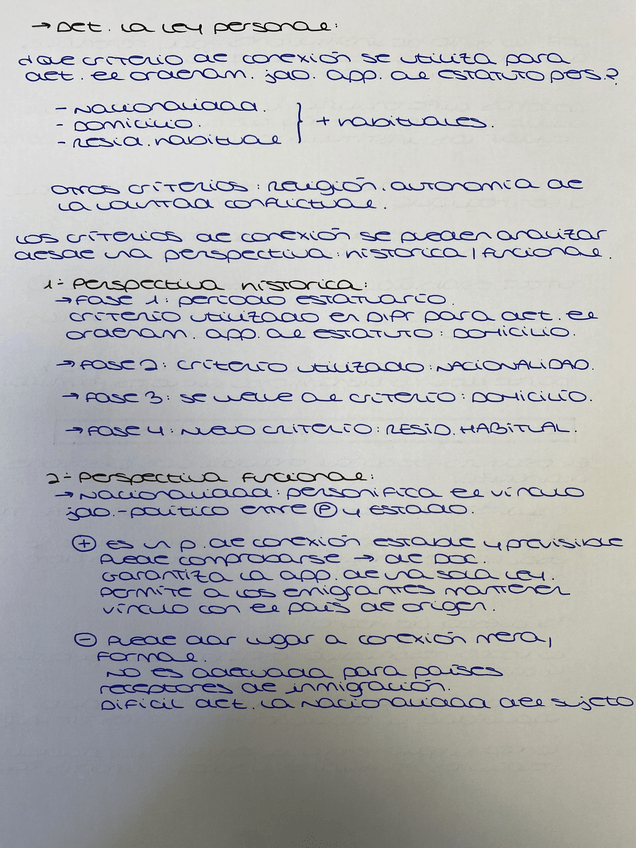 → Det. la ley personal:
¿Qué criterio de conexión se utiliza para
det. el ordenam. jdo. app. al ESTATUTO pers.?
- Nacionalidad.
- Domicilio. } + habituales.
- Resid. habitual
Otros criterios: religión. autonomía de
la voluntad conflictual.
Los criterios de conexión se pueden analizar
desde una perspectiva: histórica / funcional.
1- Perspectiva histórica:
→ Fase 1: período estatuario.
criterio utilizado en DIPr para det. el
ordenam. app. al estatuto: DOMICILIO.
→ Fase 2: criterio utilizado: NACIONALIDAD.
→ Fase 3: se vuelve al criterio: DOMICILIO.
→ Fase 4: nuevo criterio: RESID. HABITUAL.
2- Perspectiva funcional:
→ Nacionalidad: personifica el vínculo
jdo.-político entre Ⓟ y ESTADO.
⊕ Es un p. de conexión estable y previsible
Puede comprobarse → de DOC.
Garantiza la app. de una sola ley.
Permite a los emigrantes mantener
vínculo con el país de origen.
⊖ Puede dar lugar a conexión mera,
formal.
No es adecuada para países
receptores de inmigración.
Difícil det. la nacionalidad del sujeto